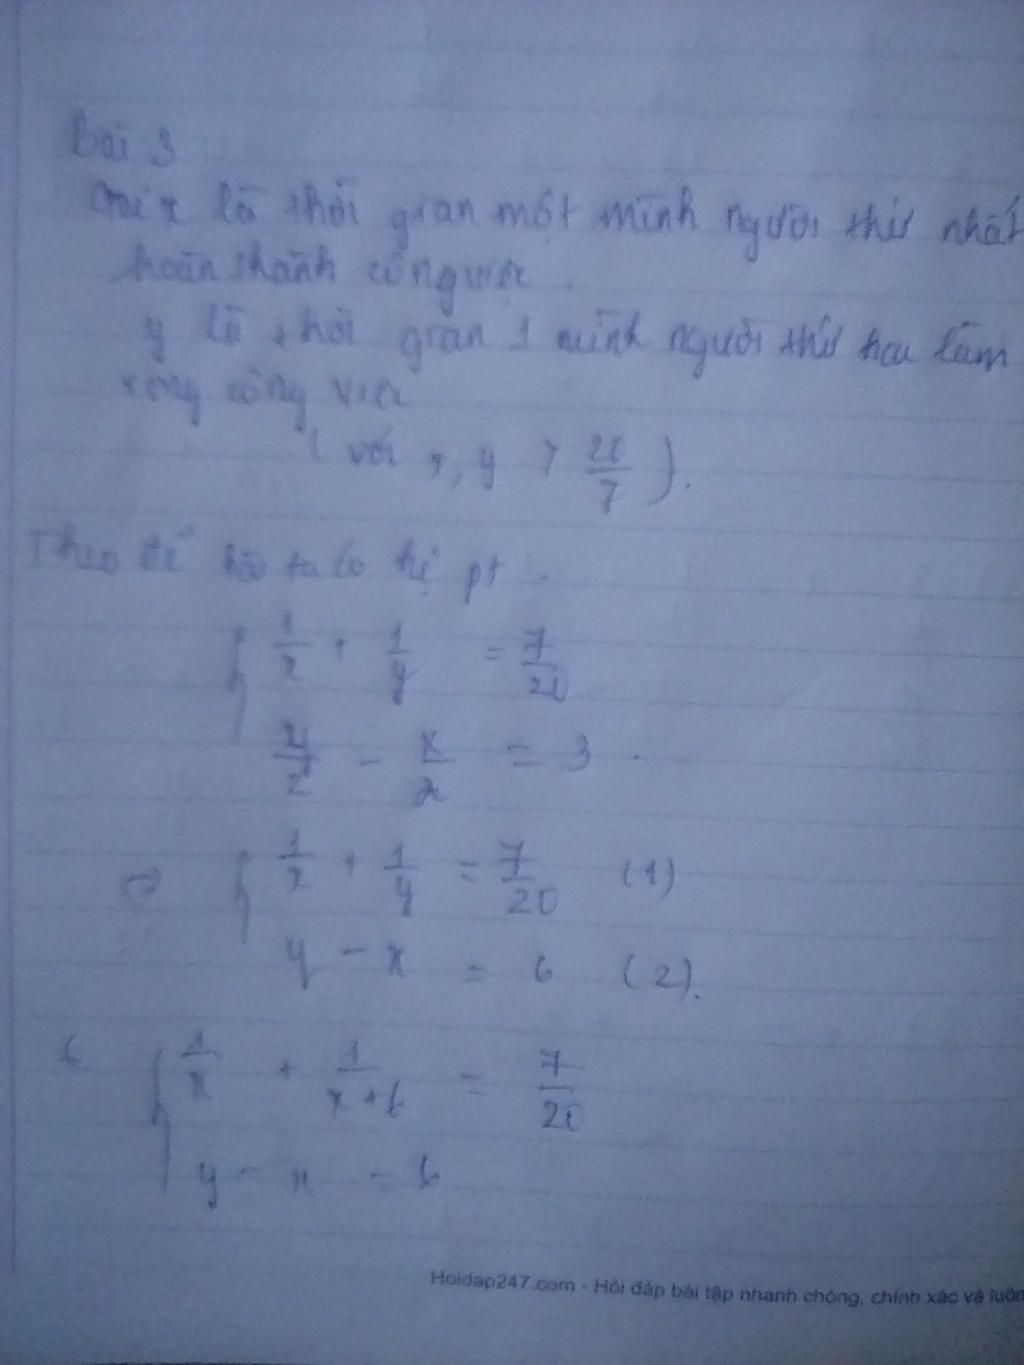 Bài 3
Gọi x là thời gian một mình người thứ nhất
hoàn thành công việc.
y là thời gian 1 mình người thứ hai làm
xong công việc
(với x, y > 20/7).
Theo đề bài ta có hệ pt
{ 1/x + 1/y = 7/20
y/2 - x/2 = 3.
⇔ { 1/x + 1/y = 7/20 (1)
y - x = 6 (2).
{ 1/x + 1/x+6 = 7/20
y - x = 6
Hoidap247.com - Hỏi đáp bài tập nhanh chóng, chính xác và luôn